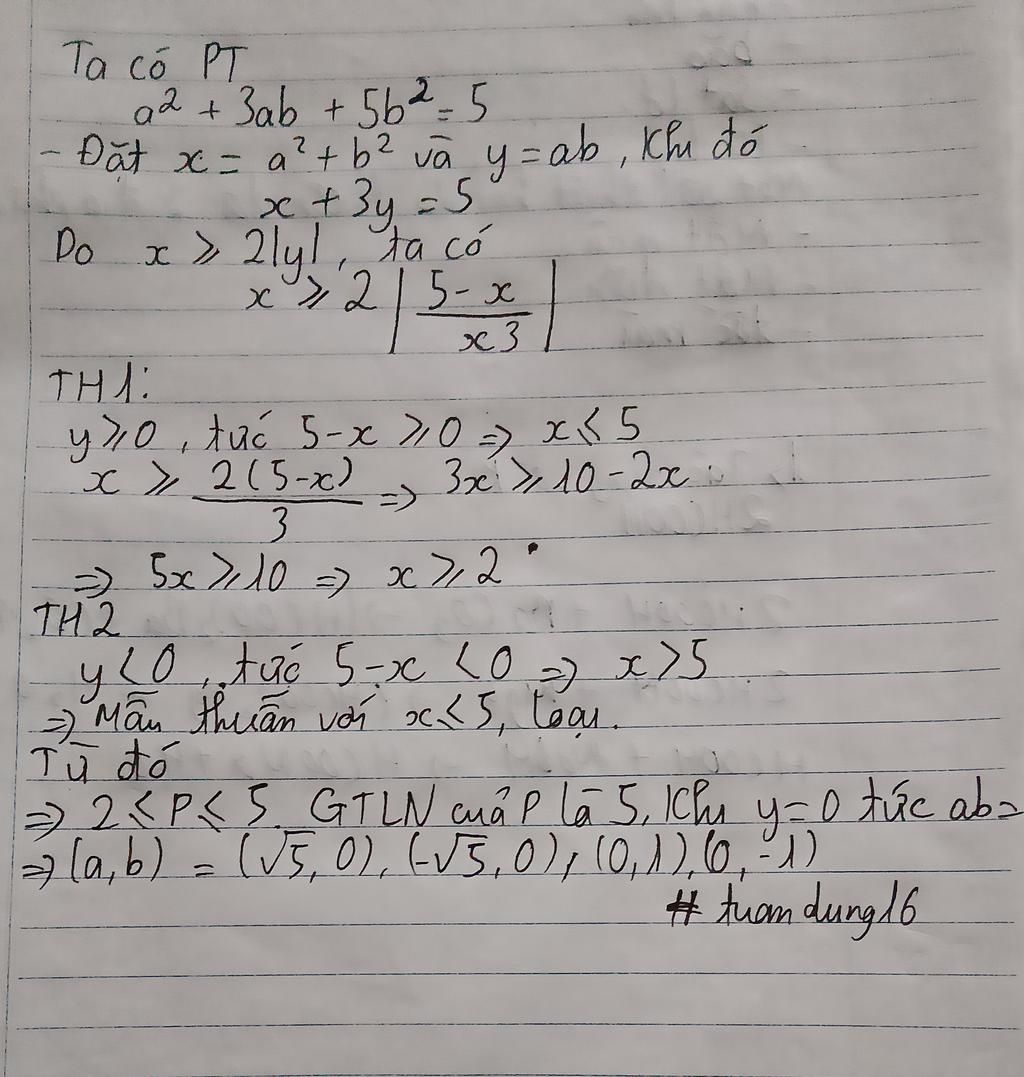 Ta có PT
a² + 3ab + 5b² = 5
- Đặt x = a² + b² và y = ab, Khi đó
x + 3y = 5
Do x ⩾ 2|y|, ta có
x ⩾ 2 | (5-x)/(x3) |
TH1:
y ⩾ 0, tức 5-x ⩾ 0 => x ⩽ 5
x ⩾ 2(5-x)/3 => 3x ⩾ 10 - 2x
=> 5x ⩾ 10 => x ⩾ 2
TH2
y < 0, tức 5-x < 0 => x > 5
=> Mẫu thuẫn với x ⩽ 5, loại.
Từ đó
=> 2 ⩽ P ⩽ 5. GTLN của P là 5, Khi y = 0 tức ab =
=> (a,b) = (√5, 0), (-√5, 0), (0,1), (0,-1)
# tuan dung16